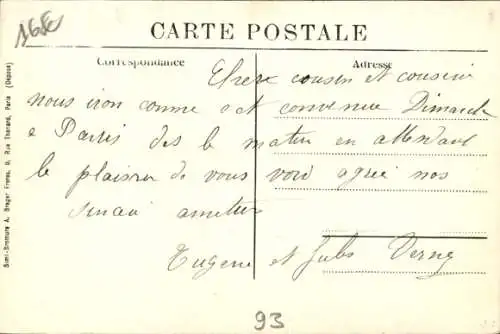 1680
CARTE POSTALE
Correspondance
Adresse
Chere cousin et cousine
nous iron comme cet convenue Dimanche
a Parris des le matin en attendant
le plaisir de vous voir agree nos
sincer amitier
Eugene et Jules Verny
93
Semi-Bromure A. Breger Freres, 9, Rue Thenard, Paris (Déposé)